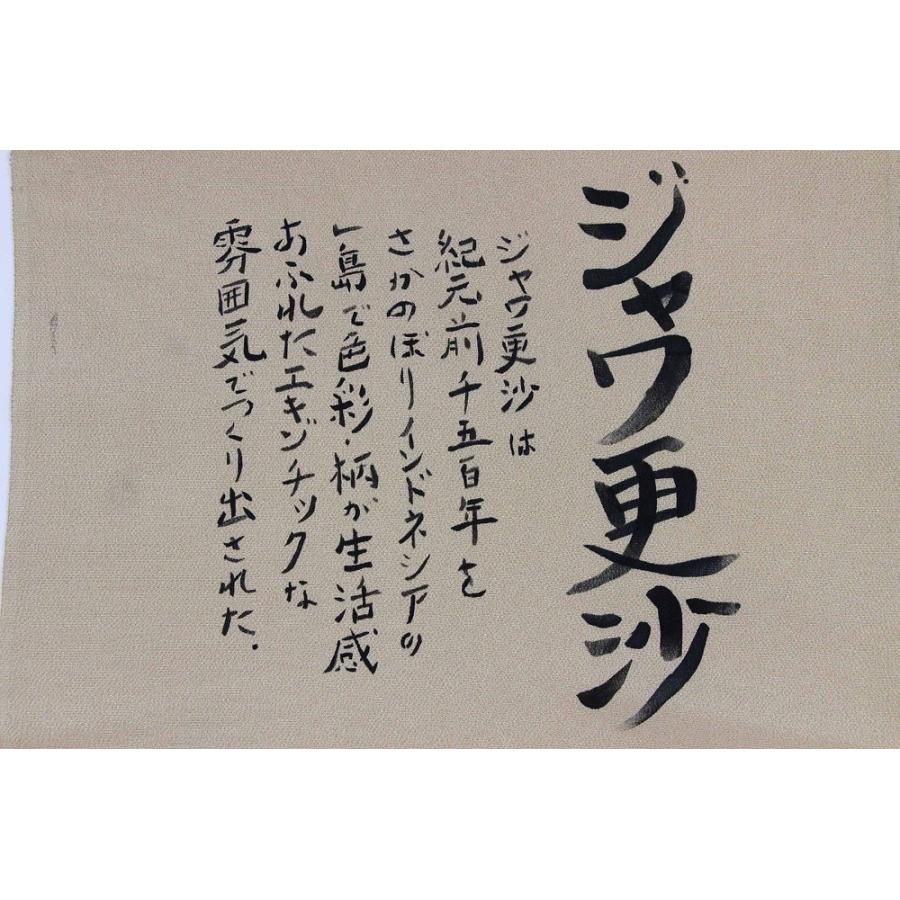 ジャワ更沙
ジャワ更沙は
紀元前千五百年を
さかのぼりインドネシアの
一島で色彩・柄が生活感
あふれたエギゾチックな
雰囲気でつくり出された.